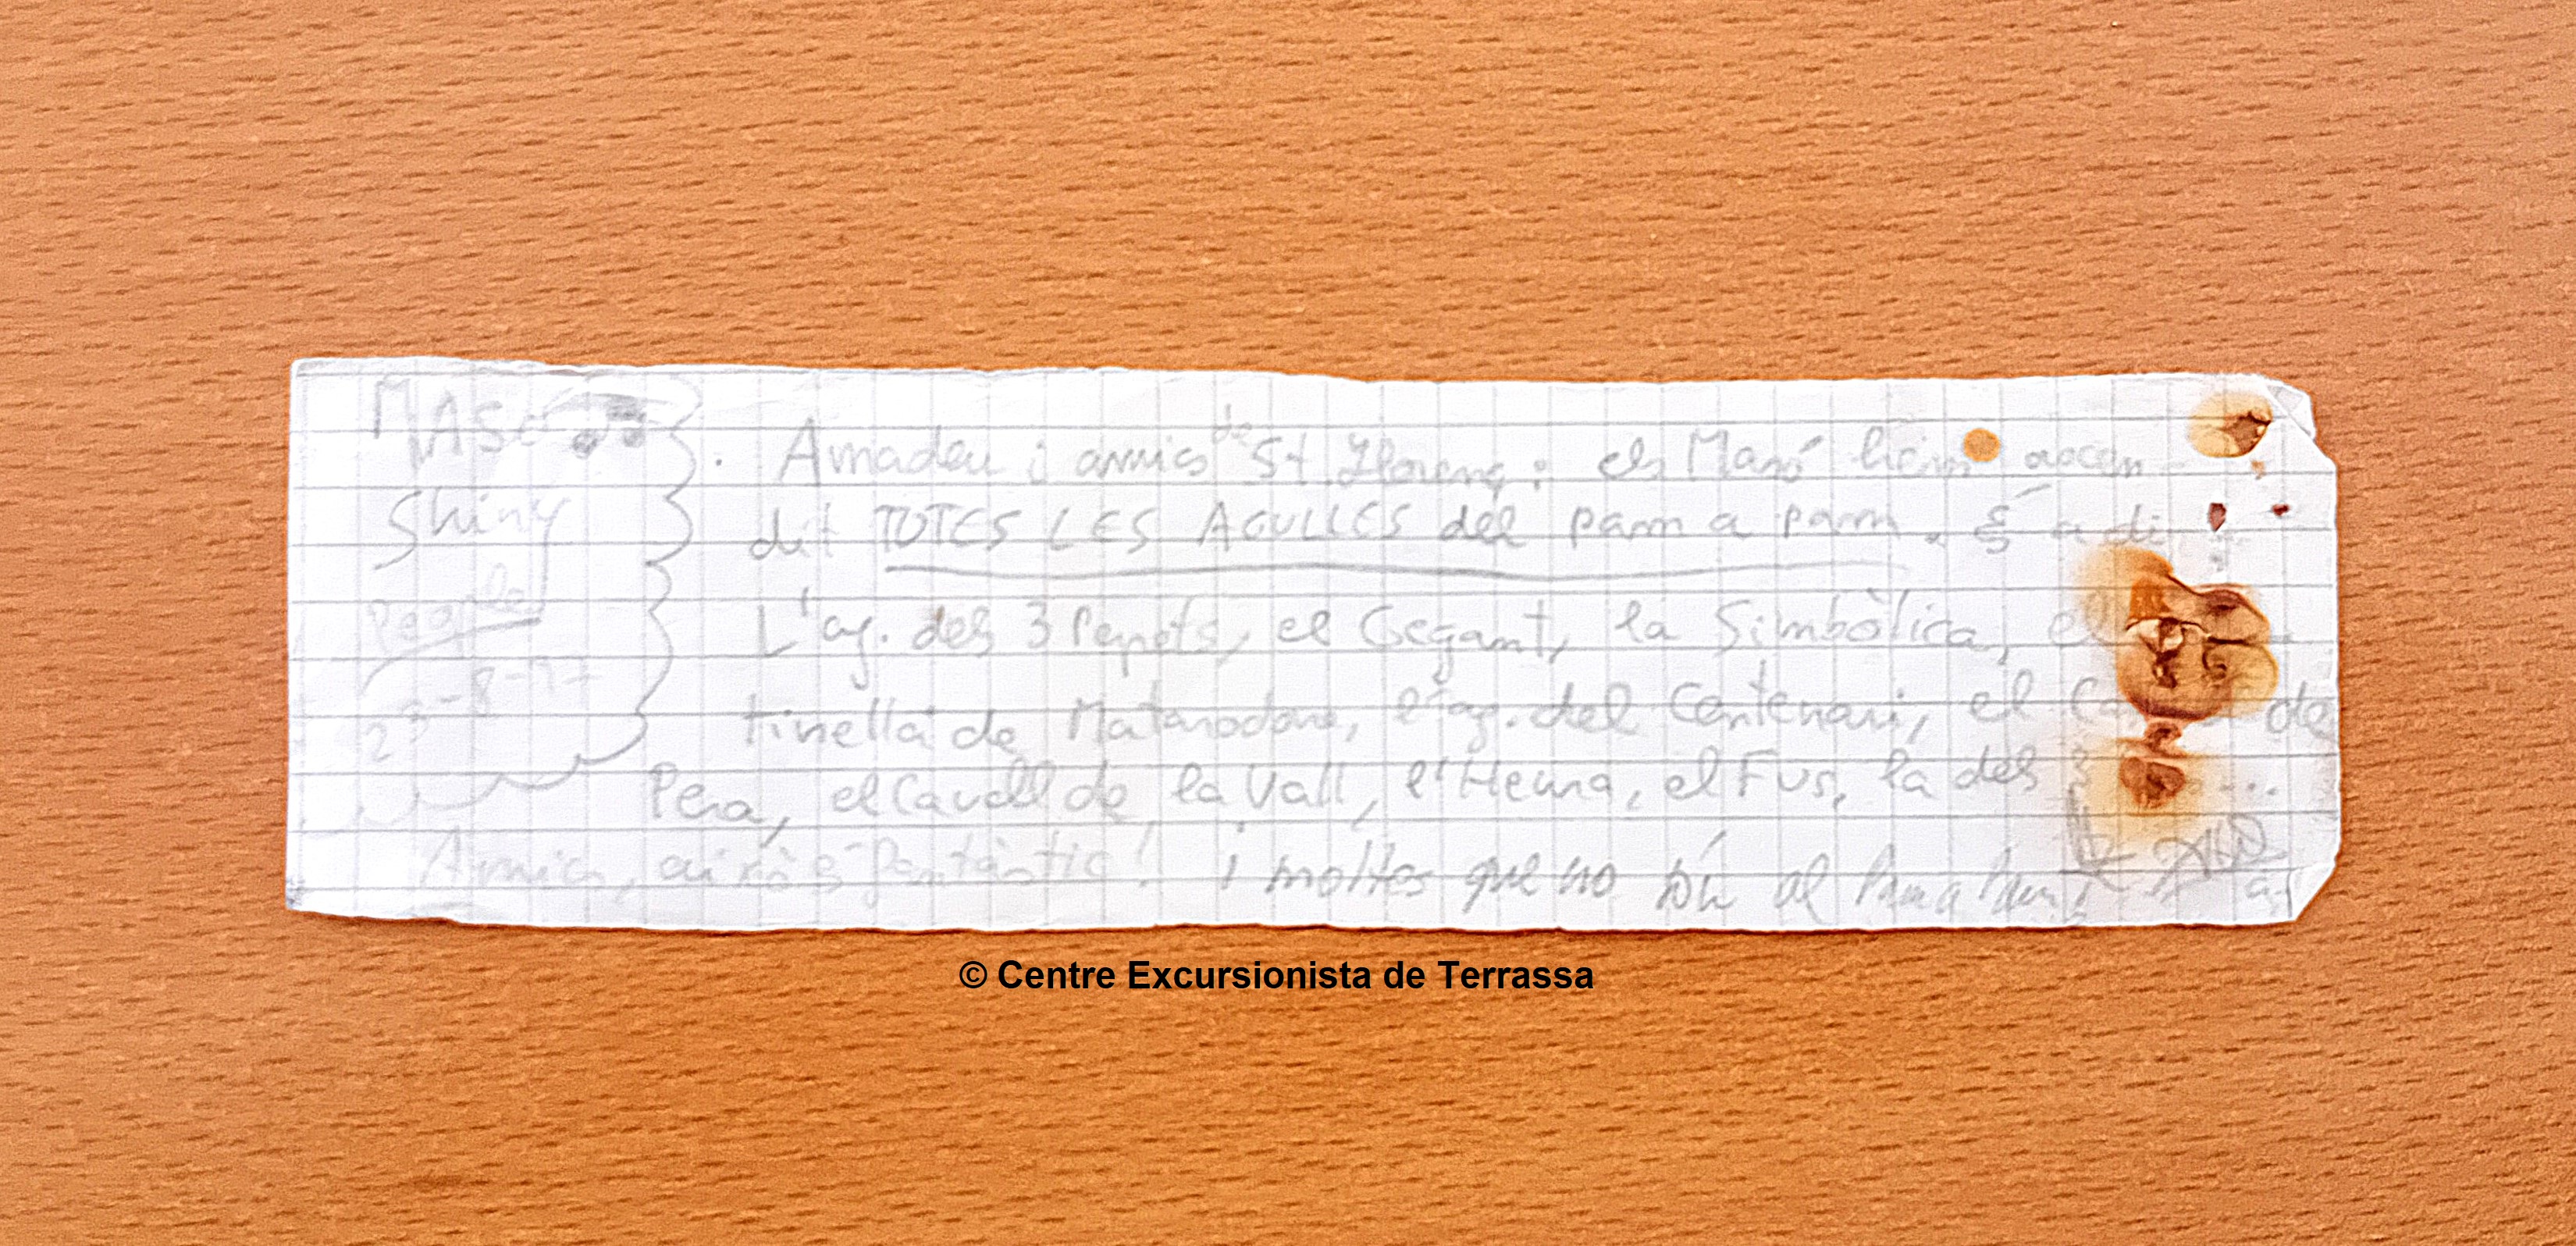 MASÓ
Shiny
23-8-77
. Amadeu i amics de St. Llorenç: els Masó hem ascen
dit TOTES LES AGULLES del pam a pam. És a di
L'ag. dels 3 Pepets, el Gegant, la Simbòlica, el
tinell de Matarodona, l'ag. del Centenari, el Ca de
Pera, el Cavall de la Vall, l'Heura, el Fus, la dels ...
Amics, això és fantàstic! i moltes que no són al Pam a Pam
© Centre Excursionista de Terrassa